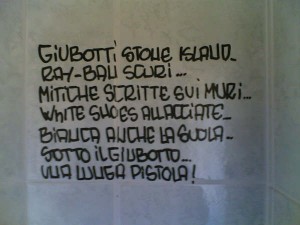 GIUBOTTI STONE ISLAND..
RAY-BAN SCURI...
MITICHE SCRITTE SUI MURI...
WHITE SHOES ALLACCIATE..
BIANCA ANCHE LA SUOLA..
SOTTO IL GIUBOTTO...
UNA LUNGA PISTOLA!